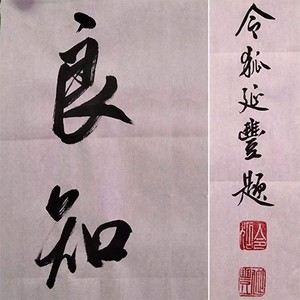 良知
令狐延豐題